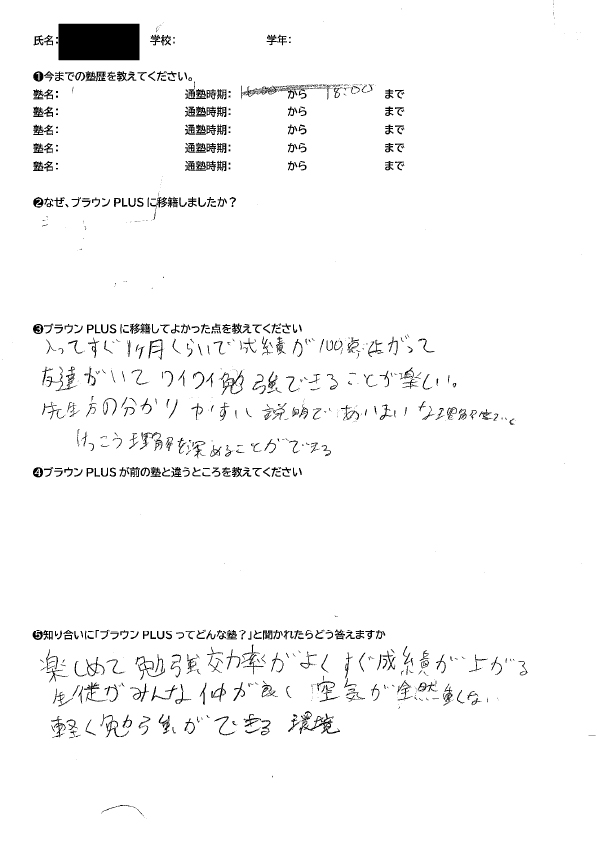 氏名： 学校： 学年：
❶今までの塾歴を教えてください。
塾名： 通塾時期： から 18:00 まで
塾名： 通塾時期： から まで
塾名： 通塾時期： から まで
塾名： 通塾時期： から まで
塾名： 通塾時期： から まで
❷なぜ、ブラウン PLUS に移籍しましたか？
❸ブラウン PLUS に移籍してよかった点を教えてください
入ってすぐ1ヶ月くらいで成績が100点上がって
友達がいてワイワイ勉強できることが楽しい。
先生方の分かりやすい説明であいまいな理解度
けっこう理解を深めることができる
❹ブラウン PLUS が前の塾と違うところを教えてください
❺知り合いに「ブラウン PLUS ってどんな塾？」と聞かれたらどう答えますか
楽しめて勉強効率がよくすぐ成績が上がる
生徒がみんな仲が良く 空気が全然重くない
軽く勉強ができる 環境